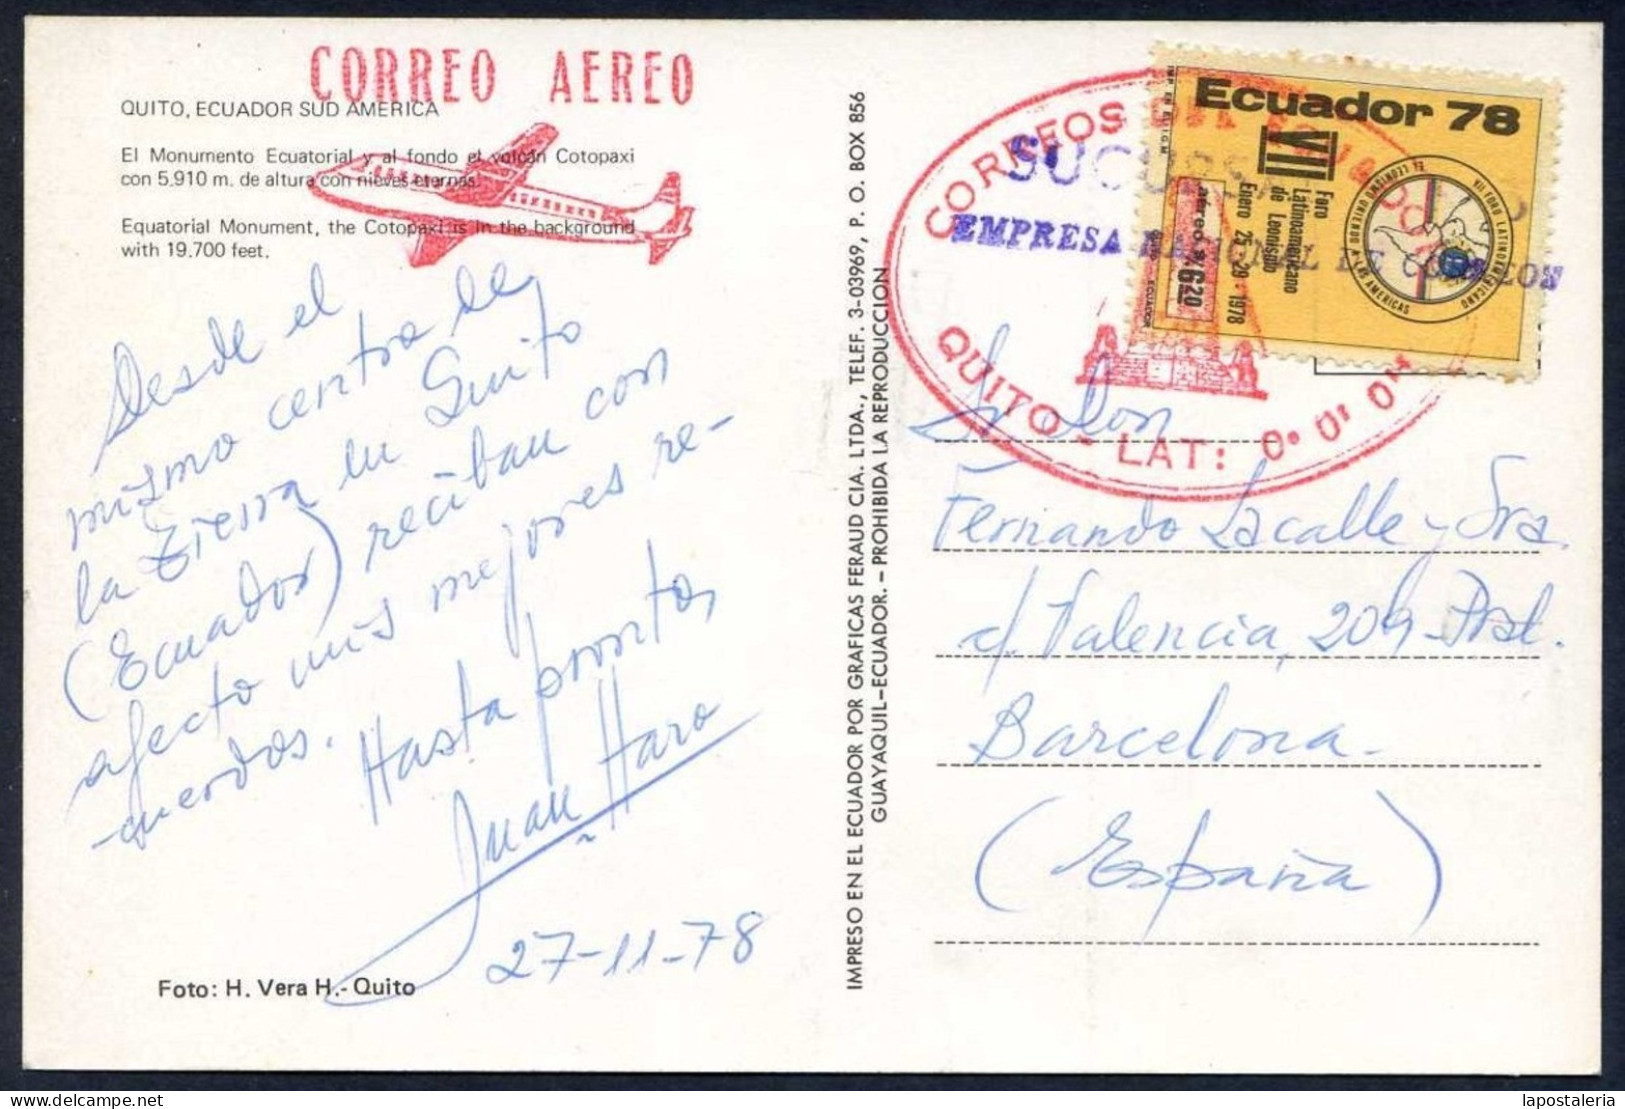 CORREO AEREO
QUITO, ECUADOR SUD AMERICA
El Monumento Ecuatorial y al fondo el volcán Cotopaxi
con 5.910 m. de altura con nieves eternas.
Equatorial Monument, the Cotopaxi is in the background
with 19.700 feet.
Desde el
mismo centro de
la Tierra en Quito
(Ecuador) reciban con
afecto mis mejores re-
cuerdos. Hasta pronto,
Juan Haro
27-11-78
Foto: H. Vera H.- Quito
IMPRESO EN EL ECUADOR POR GRAFICAS FERAUD CIA. LTDA., TELEF. 3-03969, P. O. BOX 856
GUAYAQUIL-ECUADOR. - PROHIBIDA LA REPRODUCCION
CORREOS DEL ECUADOR
QUITO - LAT: 0° 0' 0"
EMPRESA NACIONAL DE CORREOS
Ecuador 78
VII
Foro
Latinoamericano
de Leonismo
Enero 25-29-1978
aéreo s/. 6.20
QUITO ECUADOR
VII FORO LATINOAMERICANO
EL LEONISMO UNIENDO A LAS AMERICAS
Sr Don
Fernando Lacalle y Sra.
c/. Valencia, 209-Pral.
Barcelona.
(España)
lapostaleria